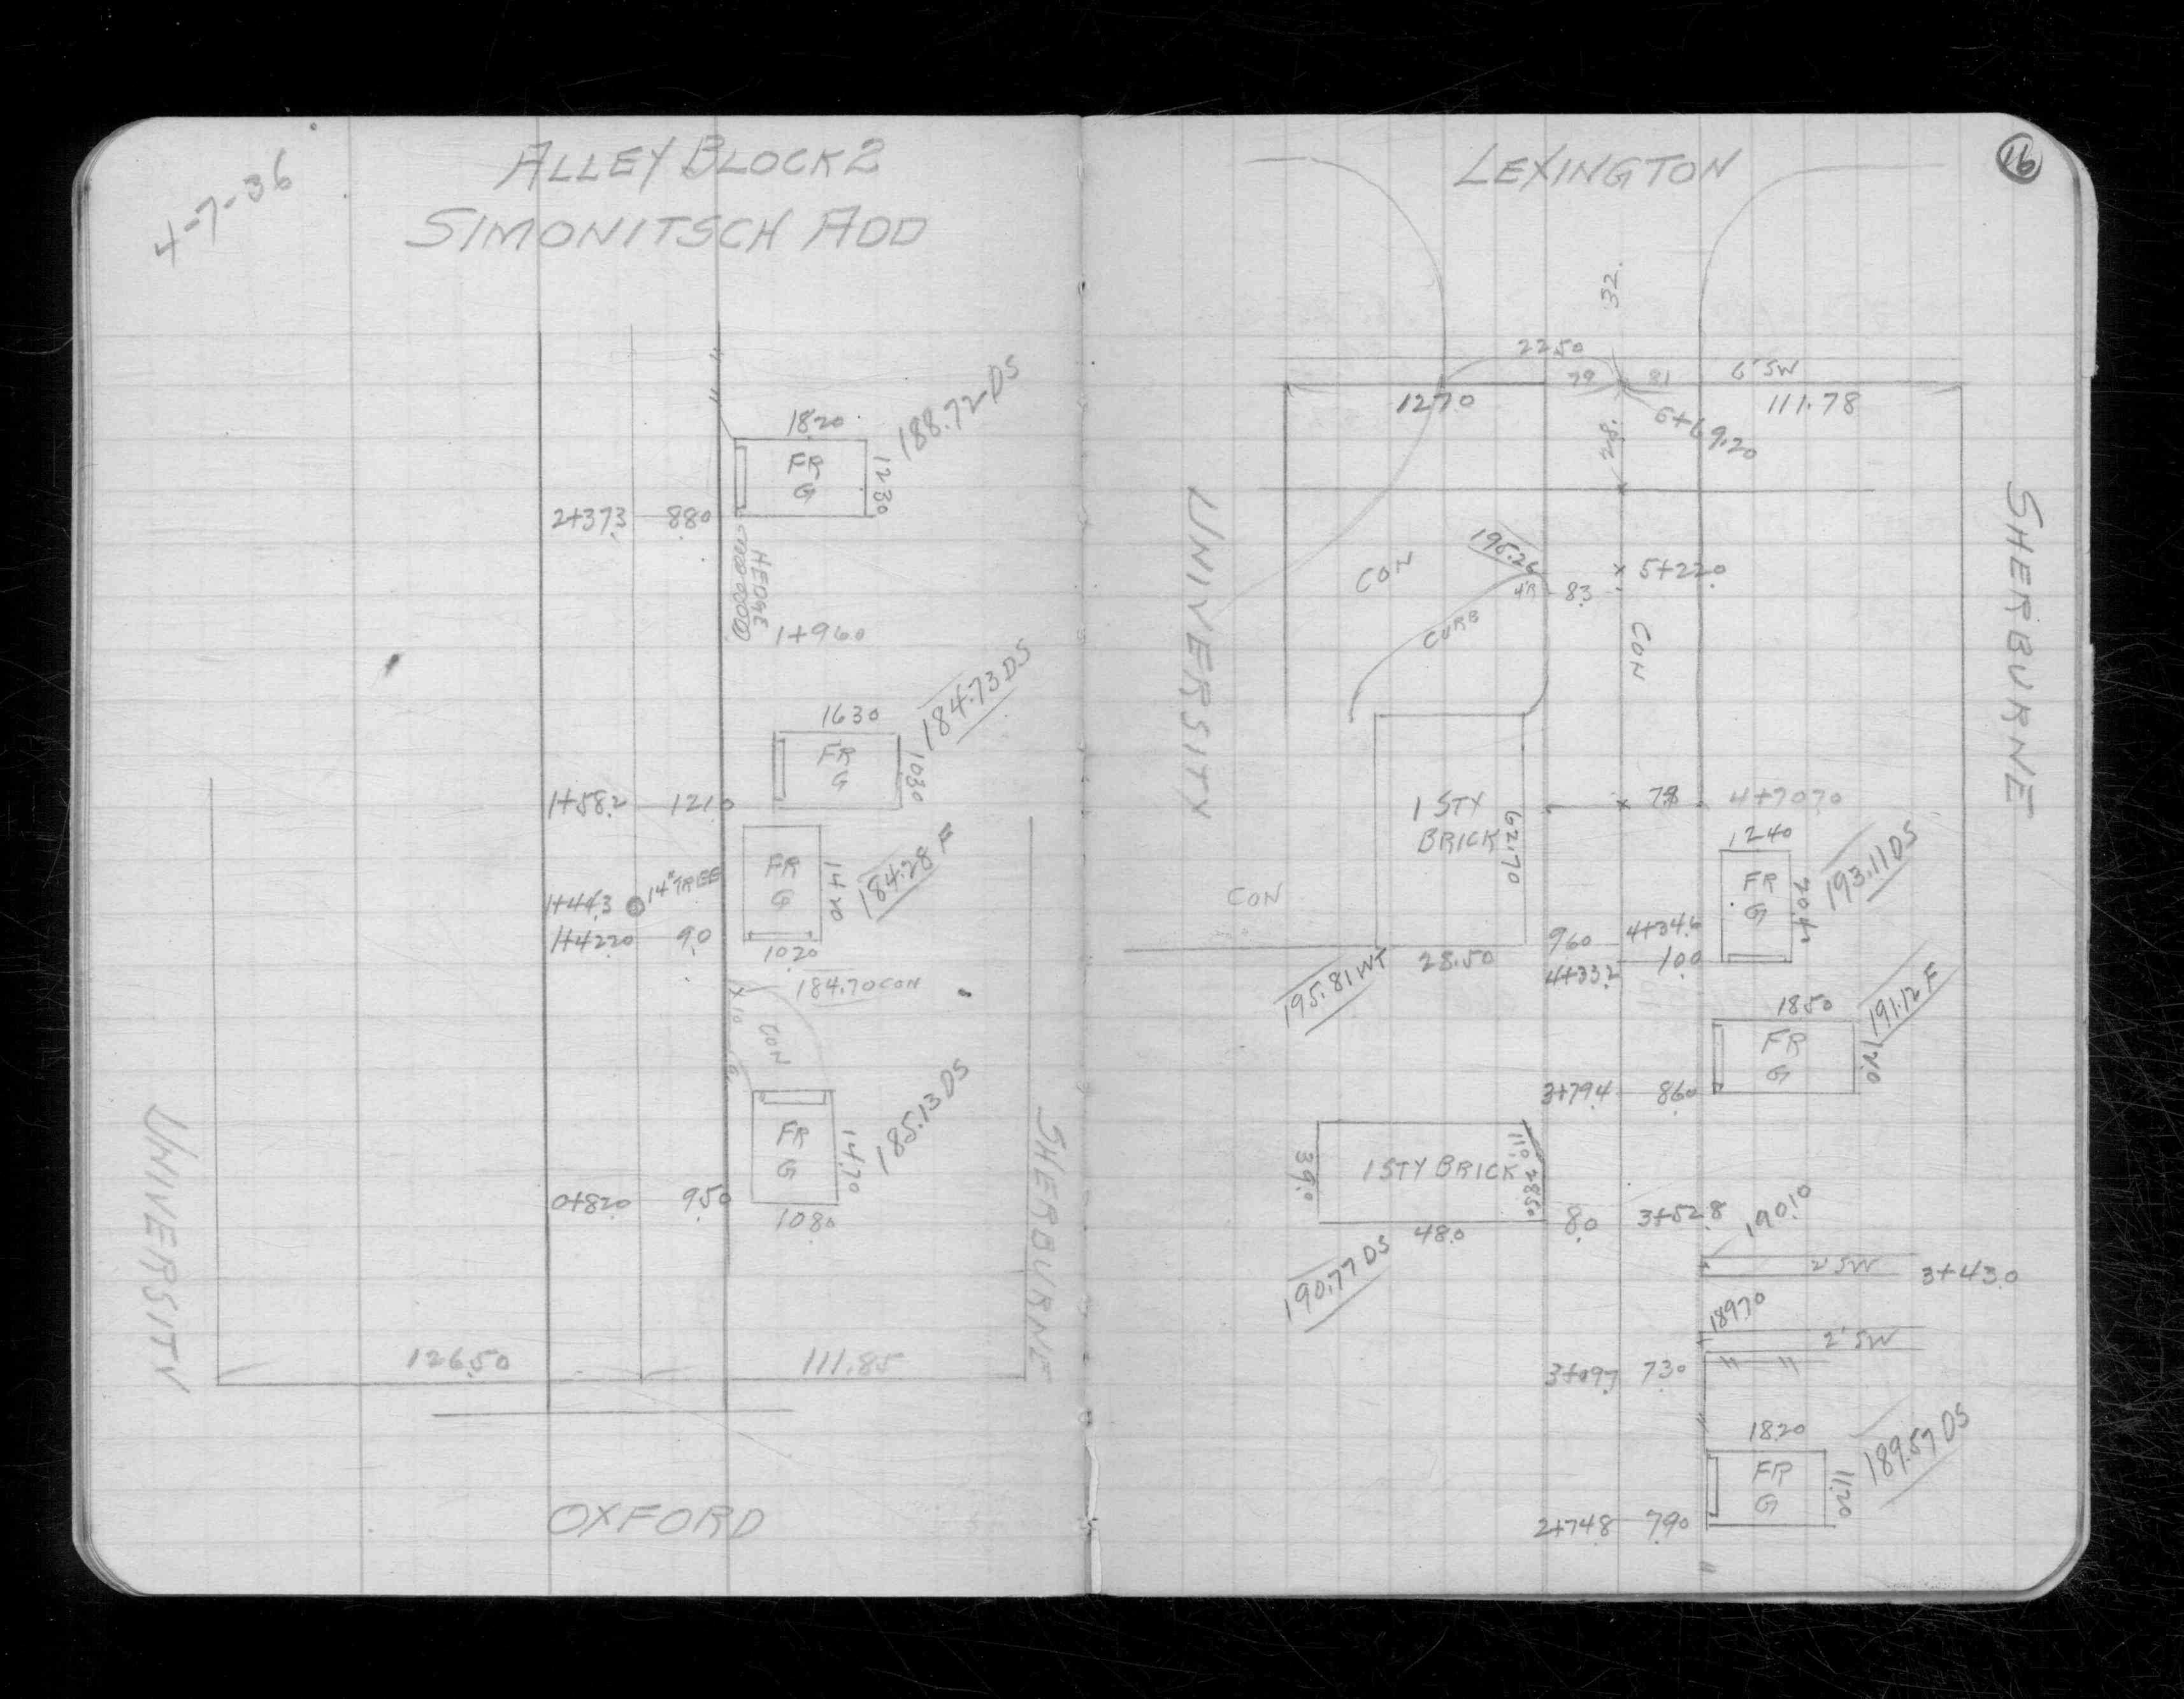 4-7-36
ALLEY BLOCK 2
SIMONITSCH ADD
1820
188.72 DS
FR
G
1230
2+373 880
HEDGE
1+960
184.73 DS
1630
FR
G
1030
1+582 1210
FR
G
1420
184.28 F
1+443 14" TREE
1+4220 90
1020
184.70 CON
X
10
CON
185.13 DS
FR
G
1470
0+820 950
1080
UNIVERSITY
SHERBURNE
12650
111.85
OXFORD
16
LEXINGTON
32.
2250
79 81 6' SW
1270
111.78
28.
6+69.20
UNIVERSITY
SHERBURNE
195.26
CON
4'R 83
X 5+220
CURB
CON
1 STY
BRICK
6270
X 78 4+7070
1240
193.11 DS
FR
G
20
CON
960 4+346
28.50
4+332 100
195.81 WT
191.12 F
1850
FR
G
120
3+794 860
1 STY BRICK
390
110
2850
480
80 3+528
190.10
190.77 DS
2' SW
3+430
18970
2' SW
3+097 730
1820
189.57 DS
FR
G
1120
2+748 790